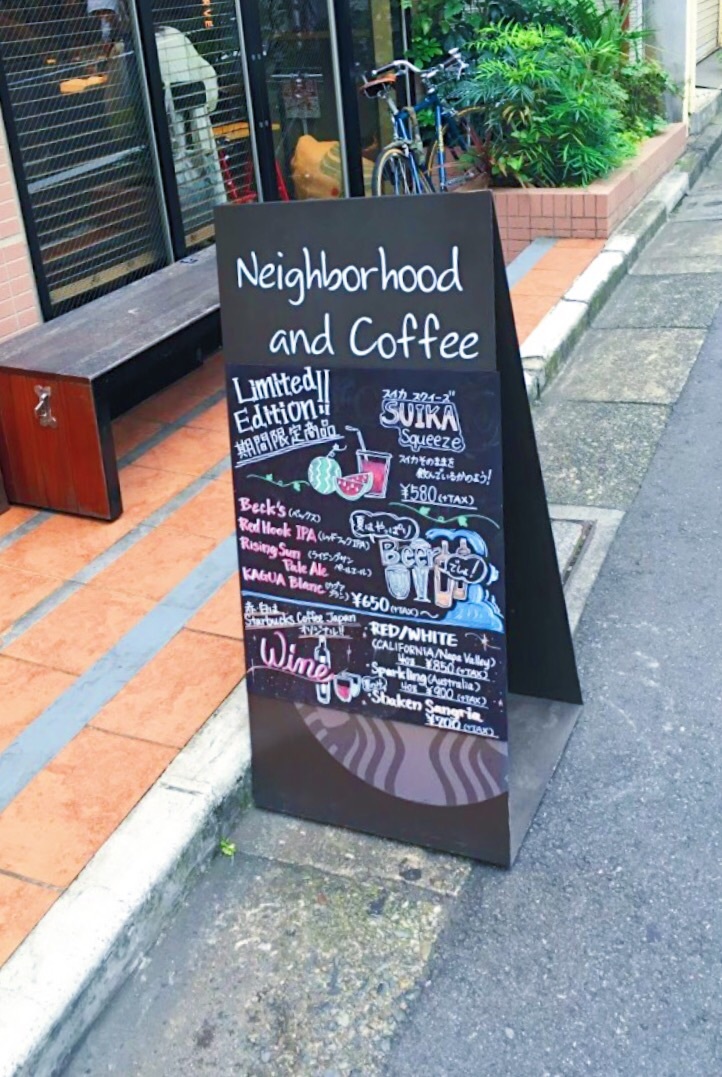 Neighborhood
and Coffee
Limited!!
Edition!!
期間限定商品
スイカ スクイーズ
SUIKA
Squeeze
スイカそのままを
飲んでいるかのよう!
¥580(+TAX)
Beck's (ベックス)
Red Hook IPA (レッドフックIPA)
Rising Sun (ライジングサン
Pale Ale ペールエール)
KAGUA Blanc (カグア
ブラン)
夏はやっぱり
Beer
でしょ!
¥650(+TAX)~
Starbucks Coffee Japan
オリジナル!!
Wine
RED/WHITE
(CALIFORNIA/Napa Valley)
4oz ¥850(+TAX)
Sparkling (Australia)
4oz ¥900(+TAX)
Shaken Sangria
¥700(+TAX)